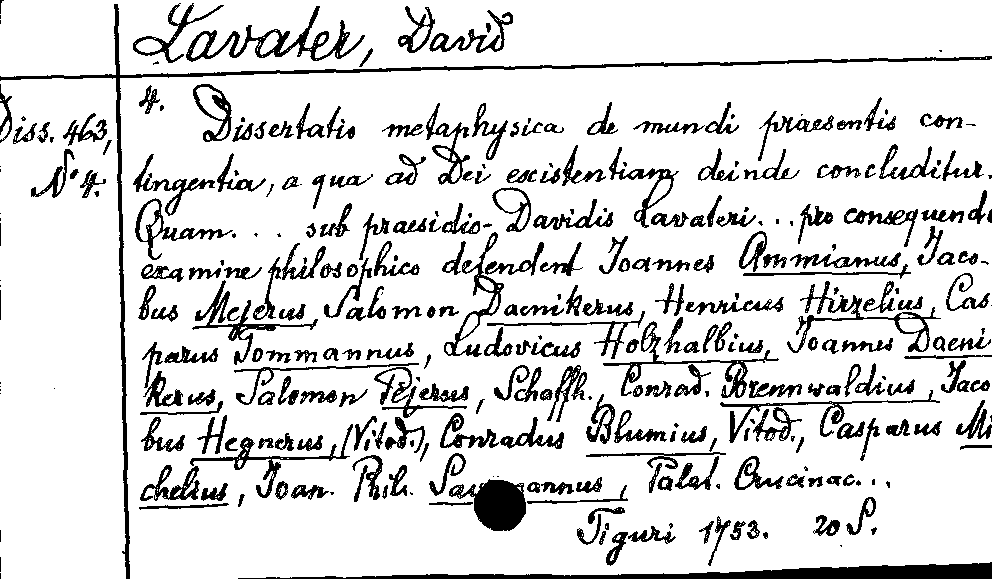 Lavater, David
Diss. 463,
No 4.
4. Dissertatio metaphysica de mundi praesentis con-
tingentia, a qua ad Dei existentiam deinde concluditur.
Quam... sub praesidio Davidis Lavateri... pro consequendo
examine philosophico defendent Joannes Ammianus, Jaco-
bus Mejerus, Salomon Daenikerus, Henricus Hirzelius, Cas
parus Tommannus, Ludovicus Holzhalbius, Joannes Daeni
kerus, Salomon Pejerus, Schaffh., Conrad. Brennwaldius, Jaco
bus Hegnerus, (Vitod.), Conradus Blumius, Vitod., Casparus Mi
chelius, Joan. Phil. Palat. Crucinac...
Tiguri 1753. 20 S.